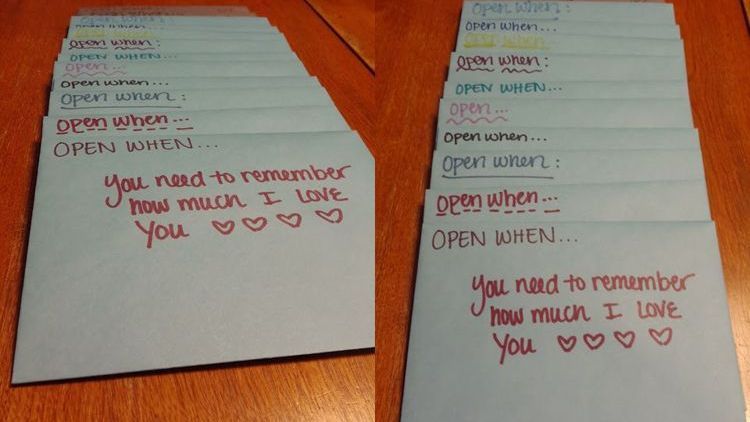 Open when:
Open when:
OPEN WHEN...
Open...
Open when...
Open when:
Open when...
OPEN WHEN...
You need to remember
how much I LOVE
You ♡ ♡ ♡ ♡
Open when:
OPEN WHEN...
Open when:
OPEN WHEN...
Open...
Open when...
Open when:
Open when...
OPEN WHEN...
You need to remember
how much I LOVE
You ♡ ♡ ♡ ♡